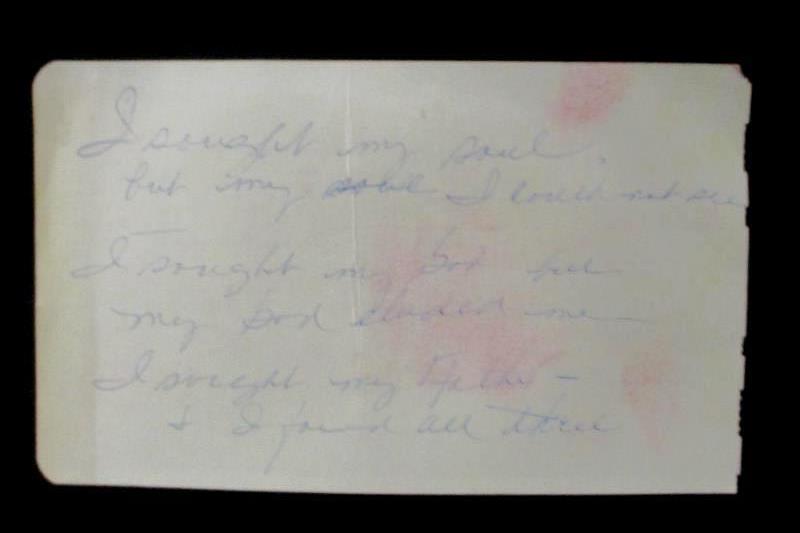 I sought my soul,
but my soul I could not see
I sought my God but
my God eluded me
I sought my -
& I found all three